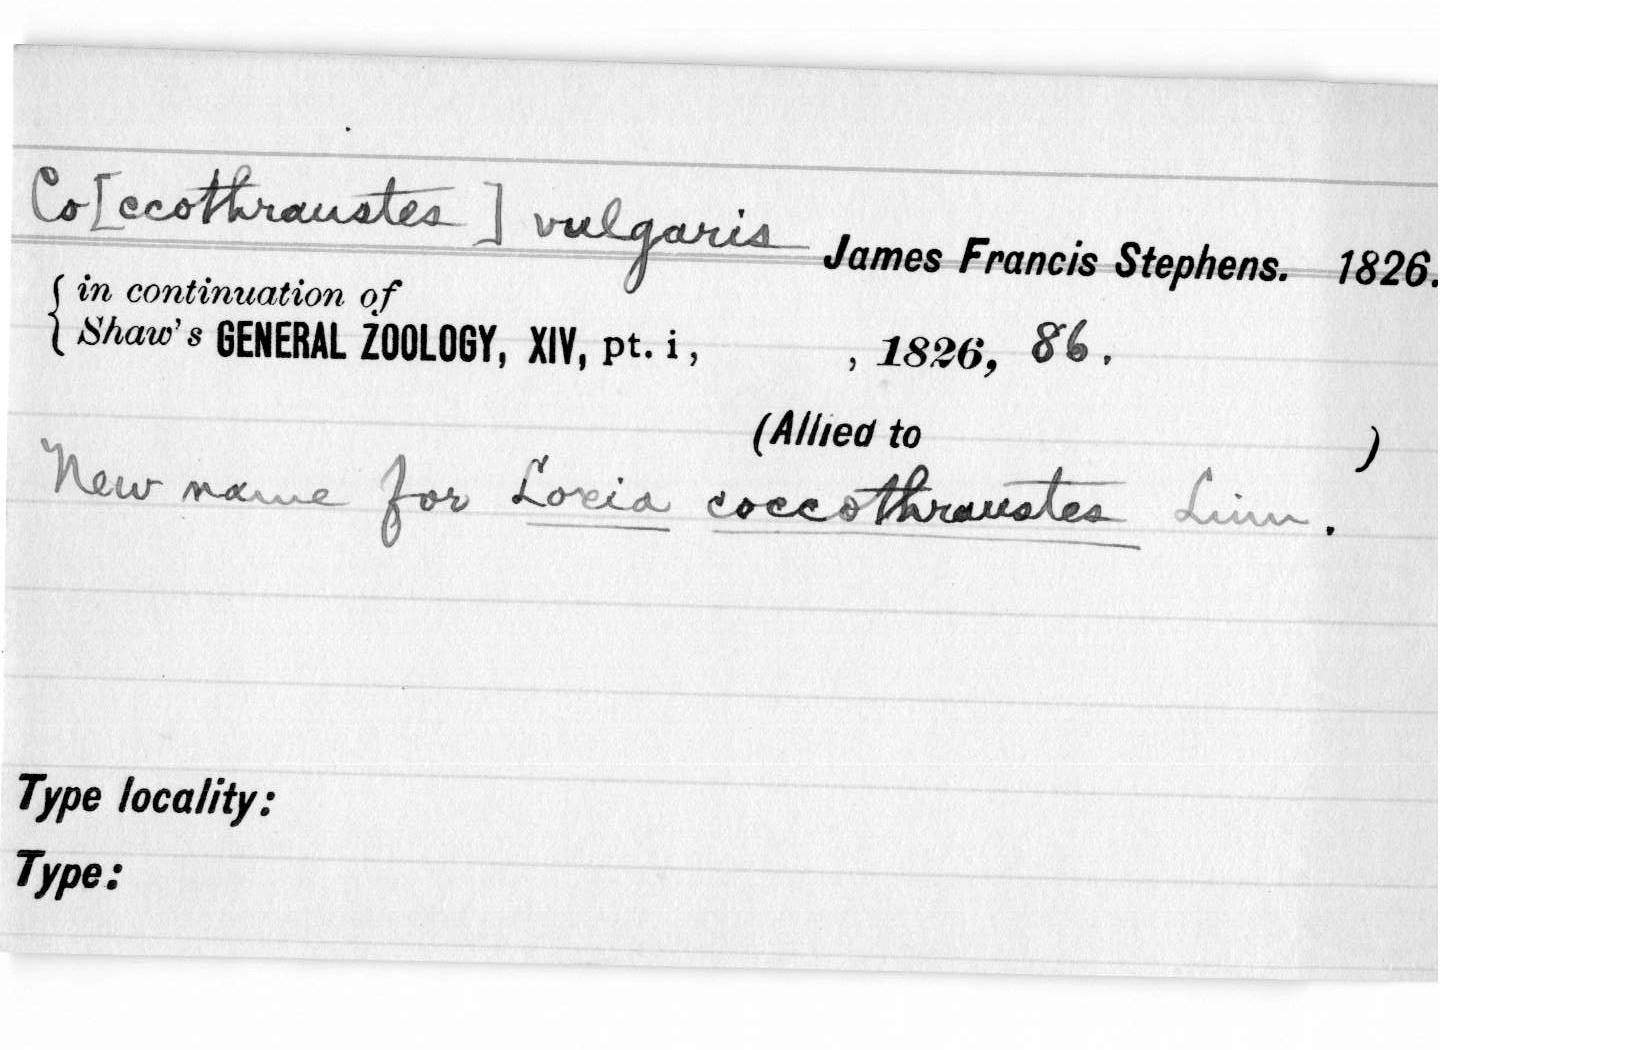 Co[ccothraustes] vulgaris James Francis Stephens. 1826.
in continuation of
Shaw's GENERAL ZOOLOGY, XIV, pt. i, , 1826, 86.
(Allied to )
New name for Loxia coccothraustes Linn.
Type locality:
Type: